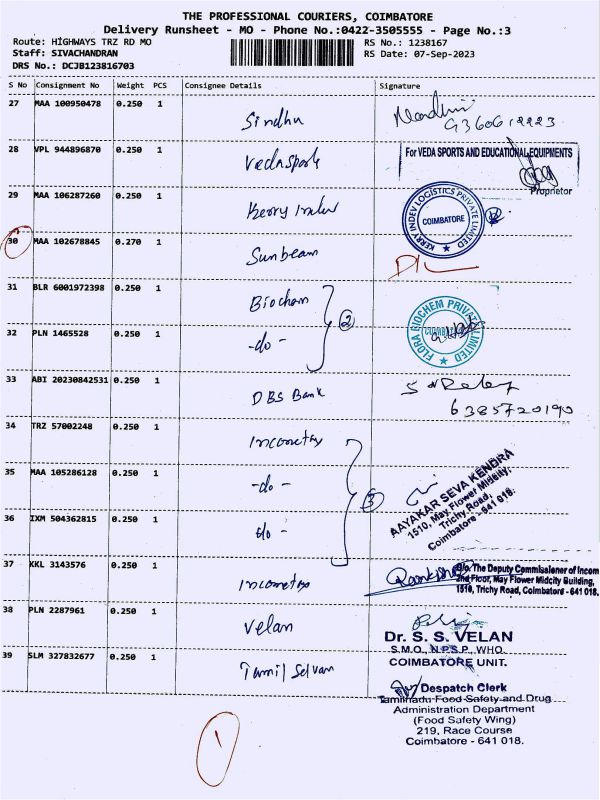 THE PROFESSIONAL COURIERS, COIMBATORE
Delivery Runsheet - MO - Phone No.:0422-3505555 - Page No.:3
Route: HIGHWAYS TRZ RD MO
RS No.: 1238167
Staff: SIVACHANDRAN
RS Date: 07-Sep-2023
DRS No.: DCJB123816703
S No Consignment No Weight PCS Consignee Details Signature
27 MAA 100950478 0.250 1 Sindhu
9360612223
28 VPL 944896870 0.250 1 Vedasports
For VEDA SPORTS AND EDUCATIONAL EQUIPMENTS
Proprietor
29 MAA 106287260 0.250 1 Kerry Indev
KERRY INDEV LOGISTICS PRIVATE LIMITED
COIMBATORE
30 MAA 102678845 0.270 1 Sunbeam
31 BLR 6001972398 0.250 1 Biochem
2
FLORA BIOCHEM PRIVATE LIMITED
32 PLN 1465528 0.250 1 -do-
33 ABI 20230842531 0.250 1 DBS Bank
6385720190
34 TRZ 57002248 0.250 1 Incometax
35 MAA 105286128 0.250 1 -do-
3
AAYAKAR SEVA KENDRA
1510, May Flower Midcity,
Trichy Road,
Coimbatore - 641 018.
36 IXM 504362815 0.250 1 do-
37 KKL 3143576 0.250 1 Incometax
O/o. The Deputy Commissioner of Incom
2nd Floor, May Flower Midcity Building,
1510, Trichy Road, Coimbatore - 641 018.
38 PLN 2287961 0.250 1 Velan
Dr. S. S. VELAN
S.M.O., N.P.S.P., WHO.
COIMBATORE UNIT.
39 SLM 327832677 0.250 1 Tamil Selvan
Despatch Clerk
Tamilnadu Food Safety and Drug
Administration Department
(Food Safety Wing)
219, Race Course
Coimbatore - 641 018.
1